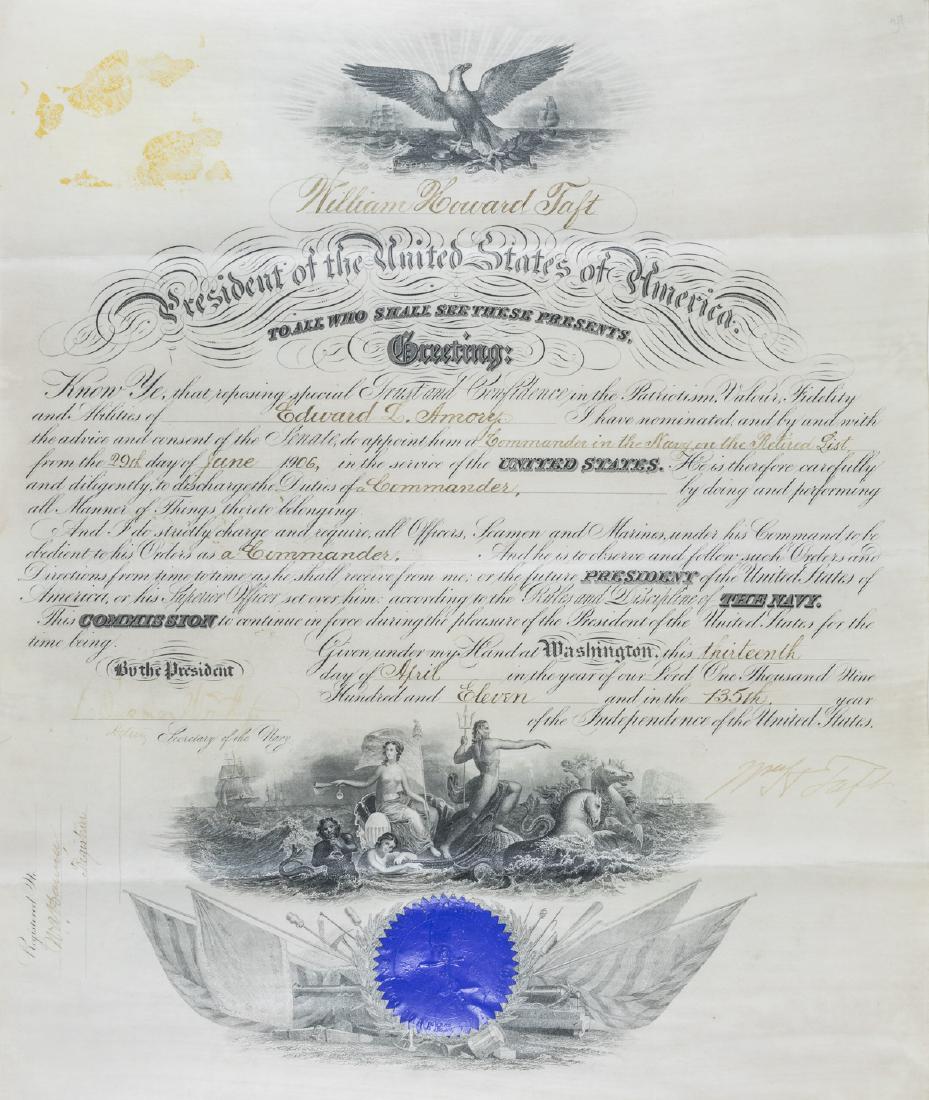 William Howard Taft
President of the United States of America.
TO ALL WHO SHALL SEE THESE PRESENTS,
Greeting:
Know Ye, that reposing special Trust and Confidence in the Patriotism, Valour, Fidelity
and Abilities of Edward L. Amory I have nominated, and by and with
the advice and consent of the Senate, do appoint him a Commander in the Navy, on the Retired List,
from the 29th day of June 1906, in the service of the UNITED STATES. He is therefore carefully
and diligently, to discharge the Duties of a Commander, by doing and performing
all Manner of Things thereto belonging.
And I do strictly charge and require, all Officers, Seamen and Marines, under his Command to be
obedient to his Orders as a Commander. And he is to observe and follow such Orders and
Directions from time to time as he shall receive from me; or the future PRESIDENT of the United States of
America, or his Superior Officer set over him; according to the Rules and Discipline of THE NAVY.
This COMMISSION to continue in force during the pleasure of the President of the United States for the
time being.
Given under my Hand at Washington, this thirteenth
day of April in the year of our Lord One Thousand Nine
Hundred and Eleven and in the 135th, year
of the Independence of the United States.
By the President
Secretary of the Navy
Wm H Taft
Registered
Register